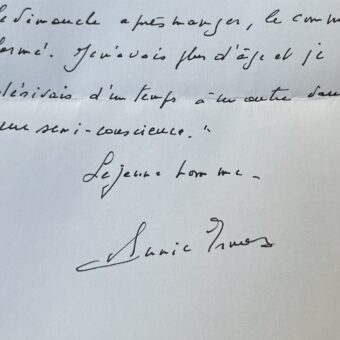 le dimanche après manger, le comm
fermé. Je n'avais plus d'âge et je
d'un temps à un autre dans
une semi-conscience."
Le jeune homme.
Annie Ernaux